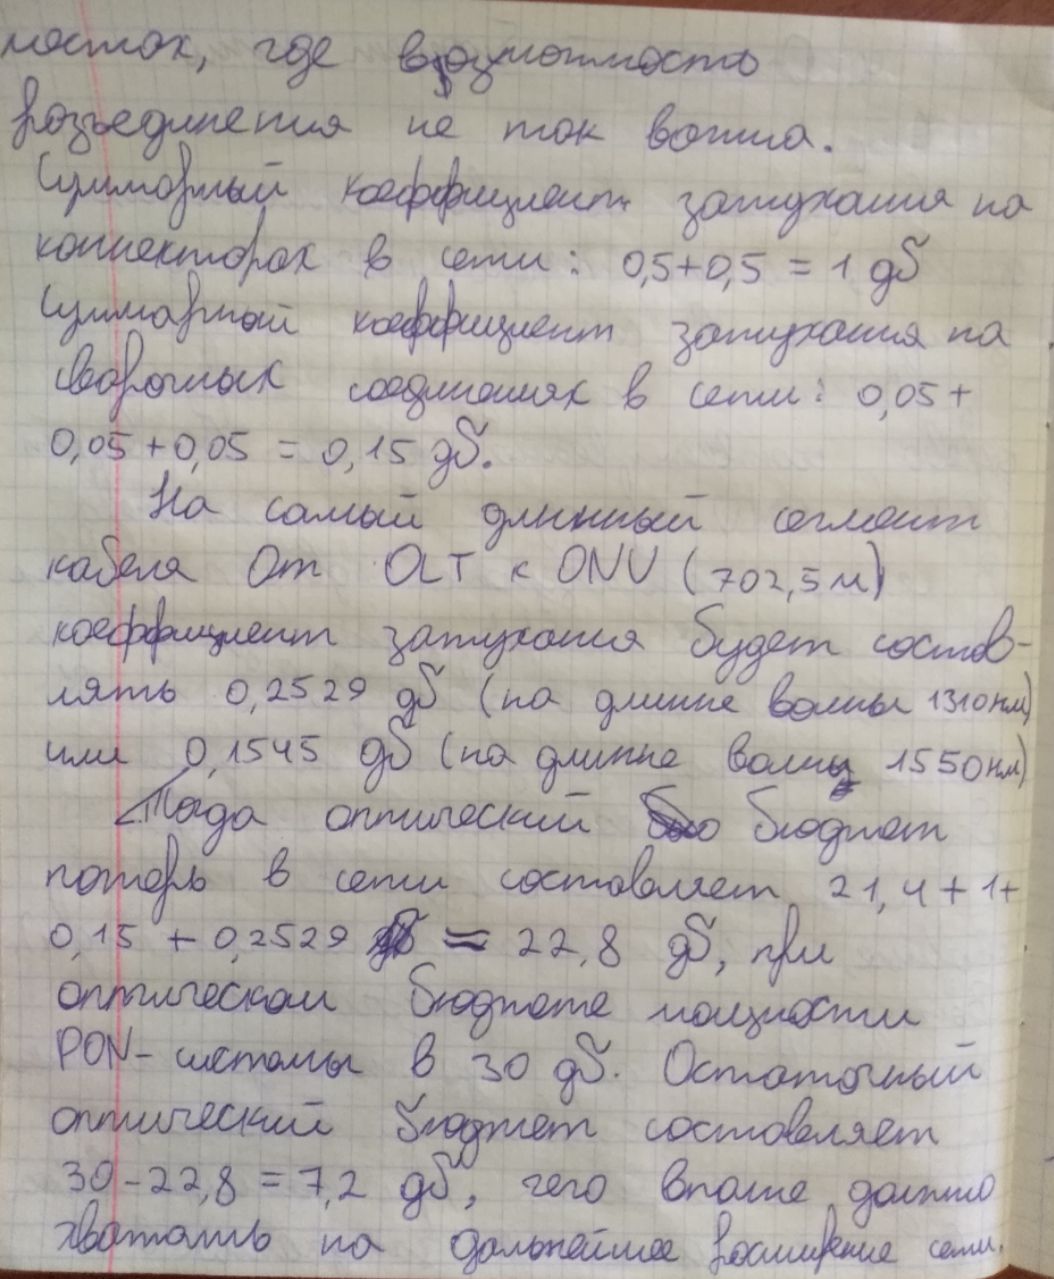 местах, где возможность
разъединения не так важна.
Суммарный коеффициент затухания на
коннекторах в сети: 0,5+0,5 = 1 дб
Суммарный коеффициент затухания на
сварочных соединениях в сети: 0,05+
0,05+0,05 = 0,15 дб.
На самый длинный сегмент
кабеля От OLT к ONU (702,5м)
коеффициент затухания будет состав-
лять 0,2529 дб (на длинне волны 1310нм)
или 0,1545 дб (на длинне волны 1550нм)
Тогда оптический бюджет
потерь в сети составляет 21,4+1+
0,15 + 0,2529 ≈ 22,8 дб, при
оптическом бюджете мощности
PON-системы в 30 дб. Остаточный
оптический бюджет составляет
30-22,8 = 7,2 дб, чего вполне должно
хватать на дальнейшее расширение сети.